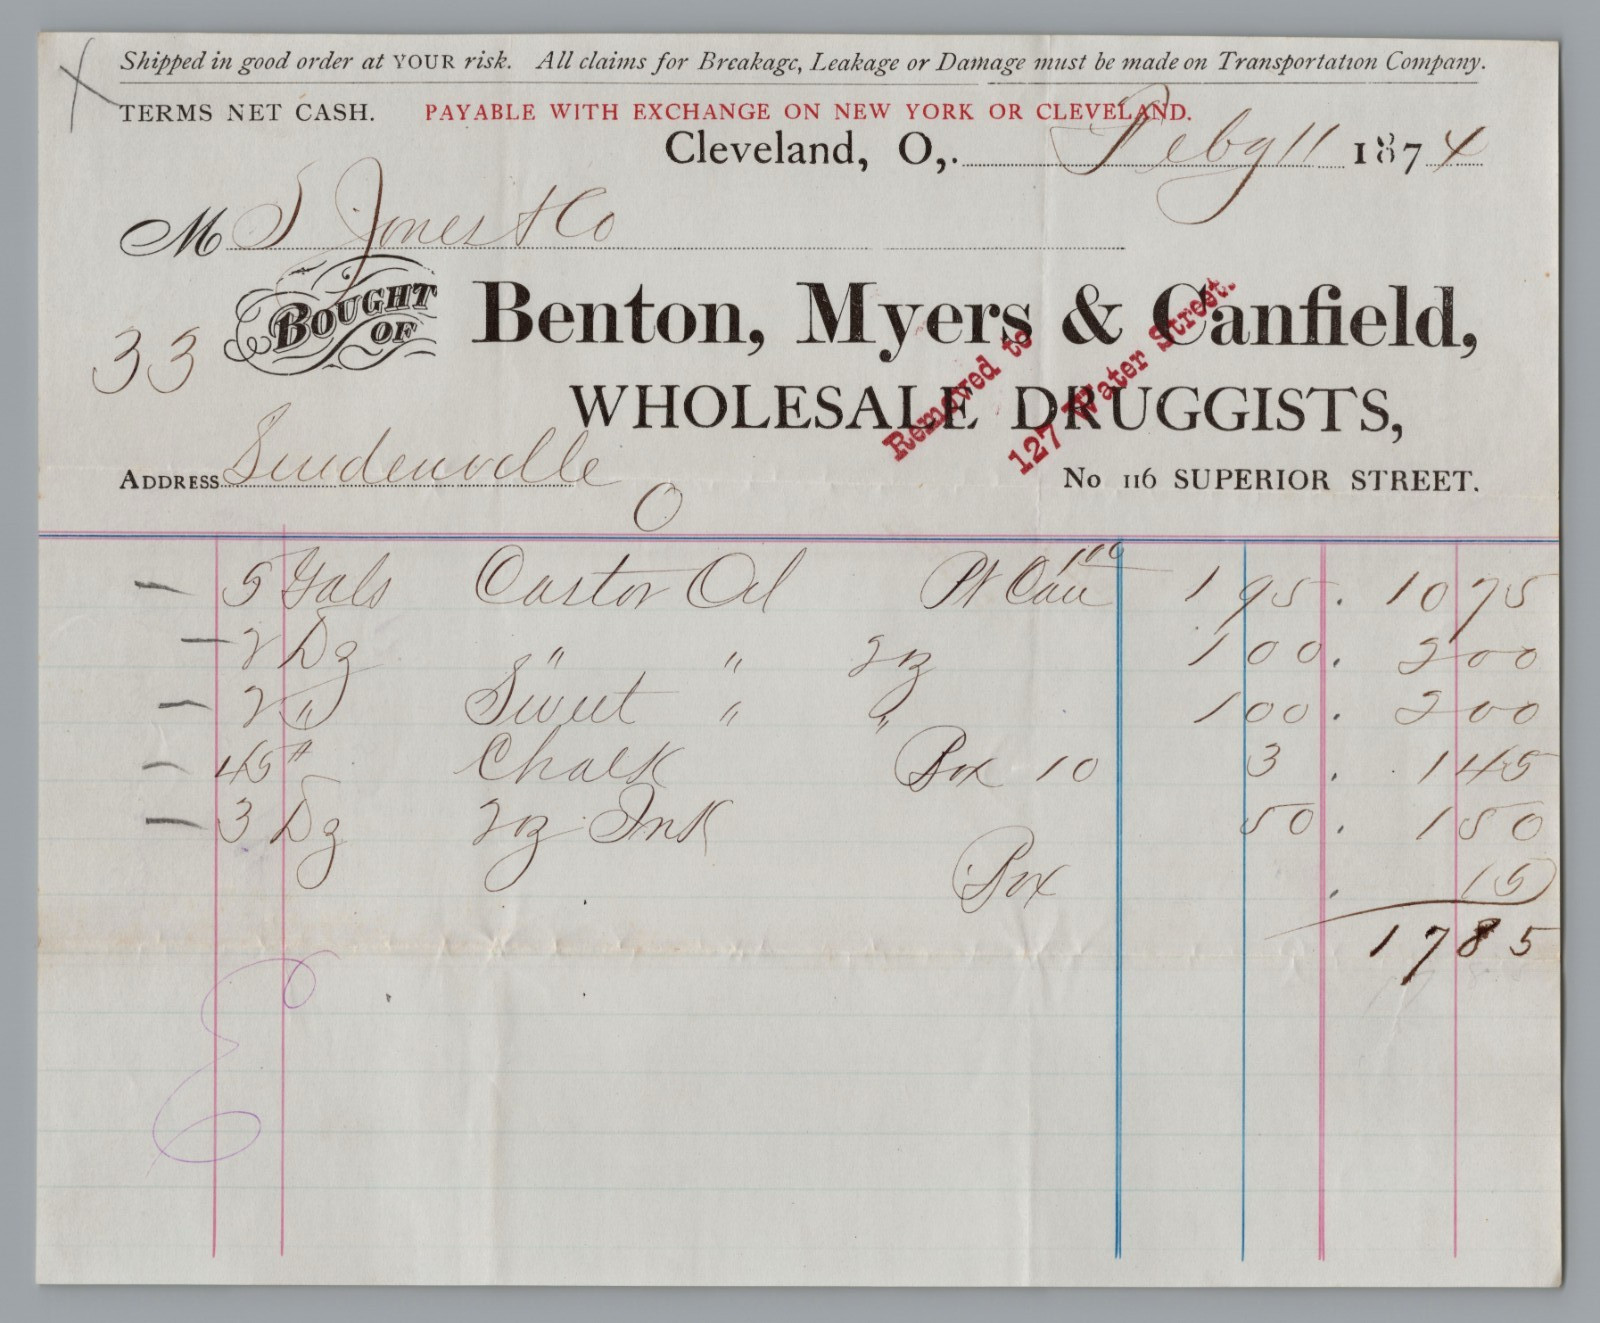 Shipped in good order at YOUR risk. All claims for Breakage, Leakage or Damage must be made on Transportation Company.
TERMS NET CASH. PAYABLE WITH EXCHANGE ON NEW YORK OR CLEVELAND.
Cleveland, O,. Feby 11 1874
M S Jones & Co
BOUGHT OF Benton, Myers & Canfield,
33
WHOLESALE DRUGGISTS,
Removed to
127 Water Street.
ADDRESS O
No 116 SUPERIOR STREET.
5 Gals Castor Oil Pt Can 100 1 95 . 10 75
2 Dz " " 2oz 1 00 . 2 00
2 " Sweet " " 1 00 . 2 00
45 # Chalk Box 10 3 . 1 45
3 Dz 2oz Ink 50 . 1 50
Box . 15
17 85